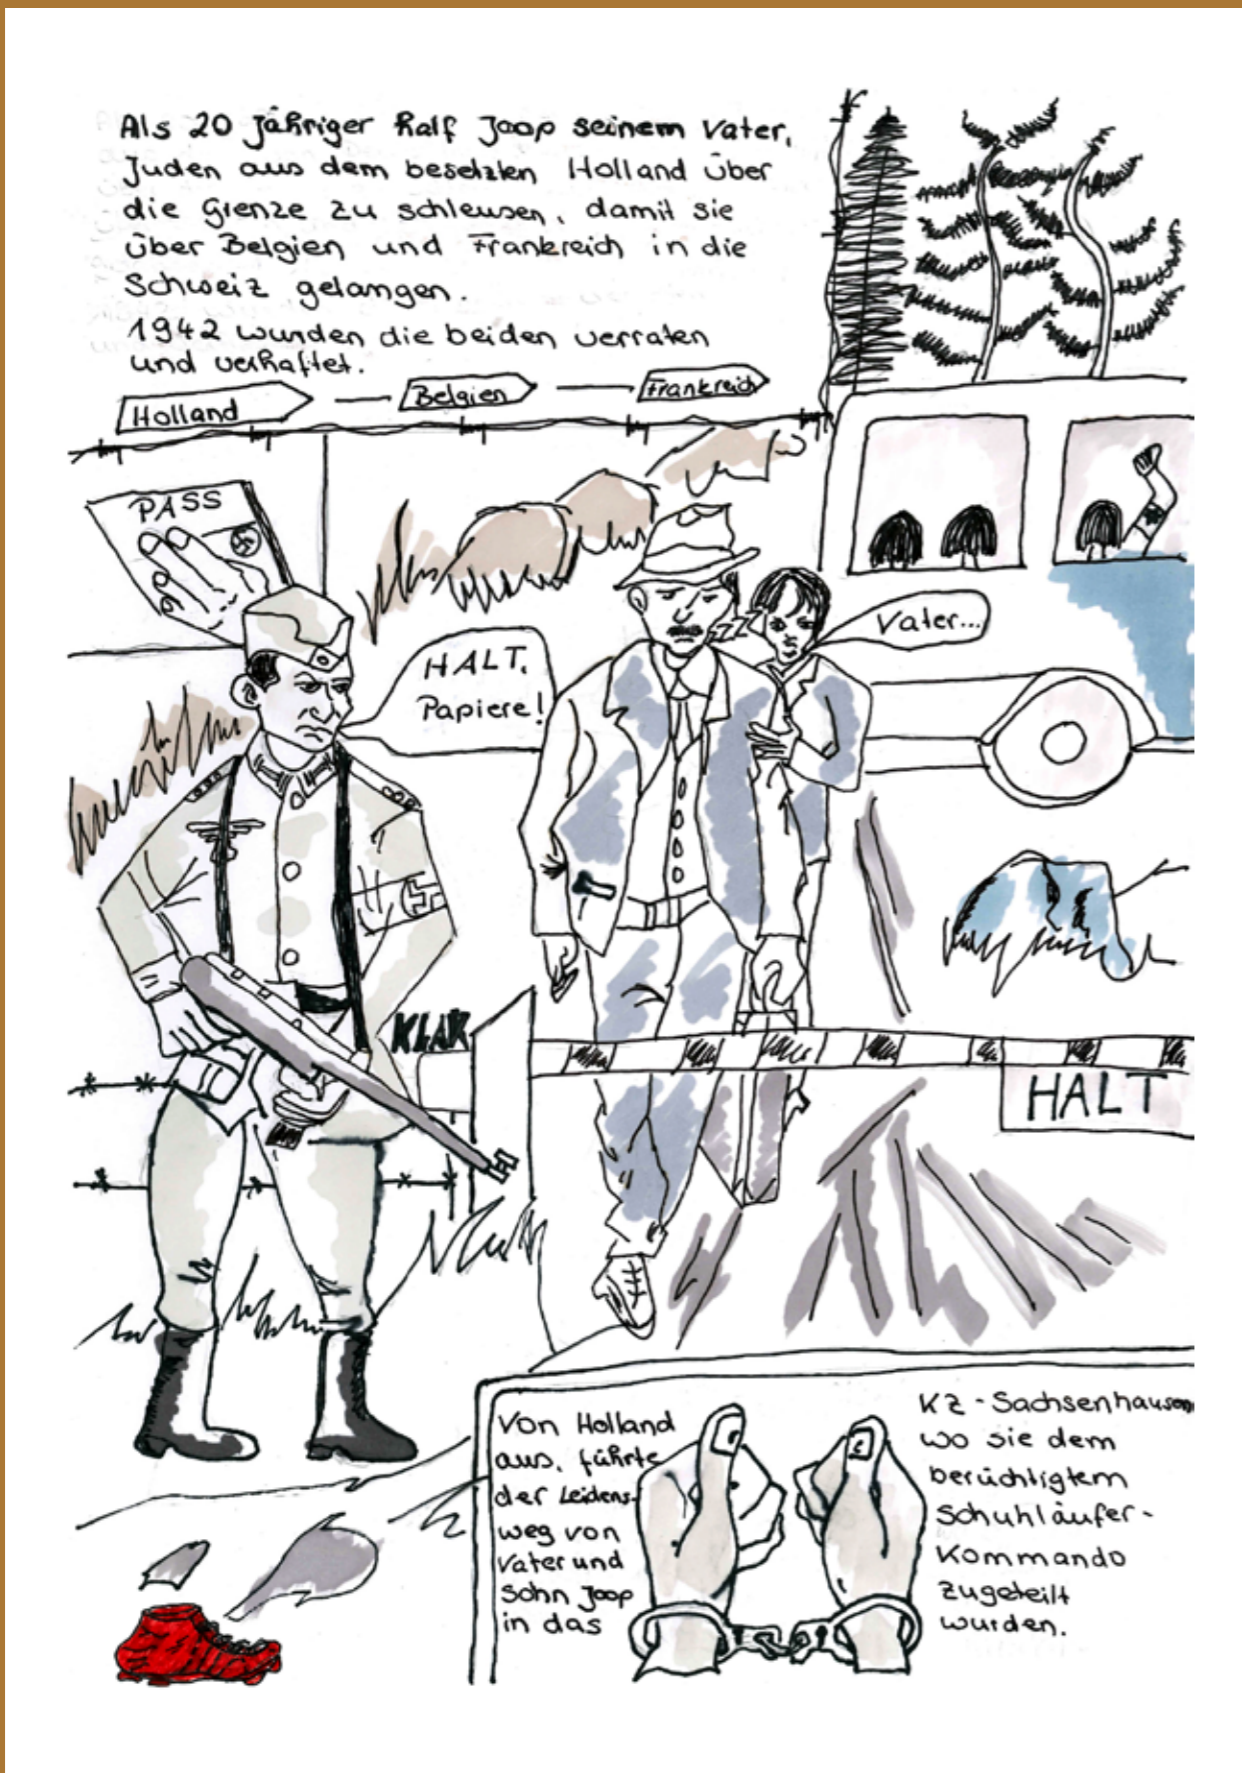 Als 20 jähriger half Joop seinem Vater,
Juden aus dem besetzten Holland über
die Grenze zu schleusen, damit sie
über Belgien und Frankreich in die
Schweiz gelangen.
1942 wurden die beiden verraten
und verhaftet.
Holland
Belgien
Frankreich
PASS
HALT,
Papiere!
Vater...
KLAK
HALT
Von Holland
aus, führte
der Leidens-
weg von
Vater und
Sohn Joop
in das
KZ-Sachsenhausen
wo sie dem
berüchtigtem
Schuhläufer-
Kommando
zugeteilt
wurden.